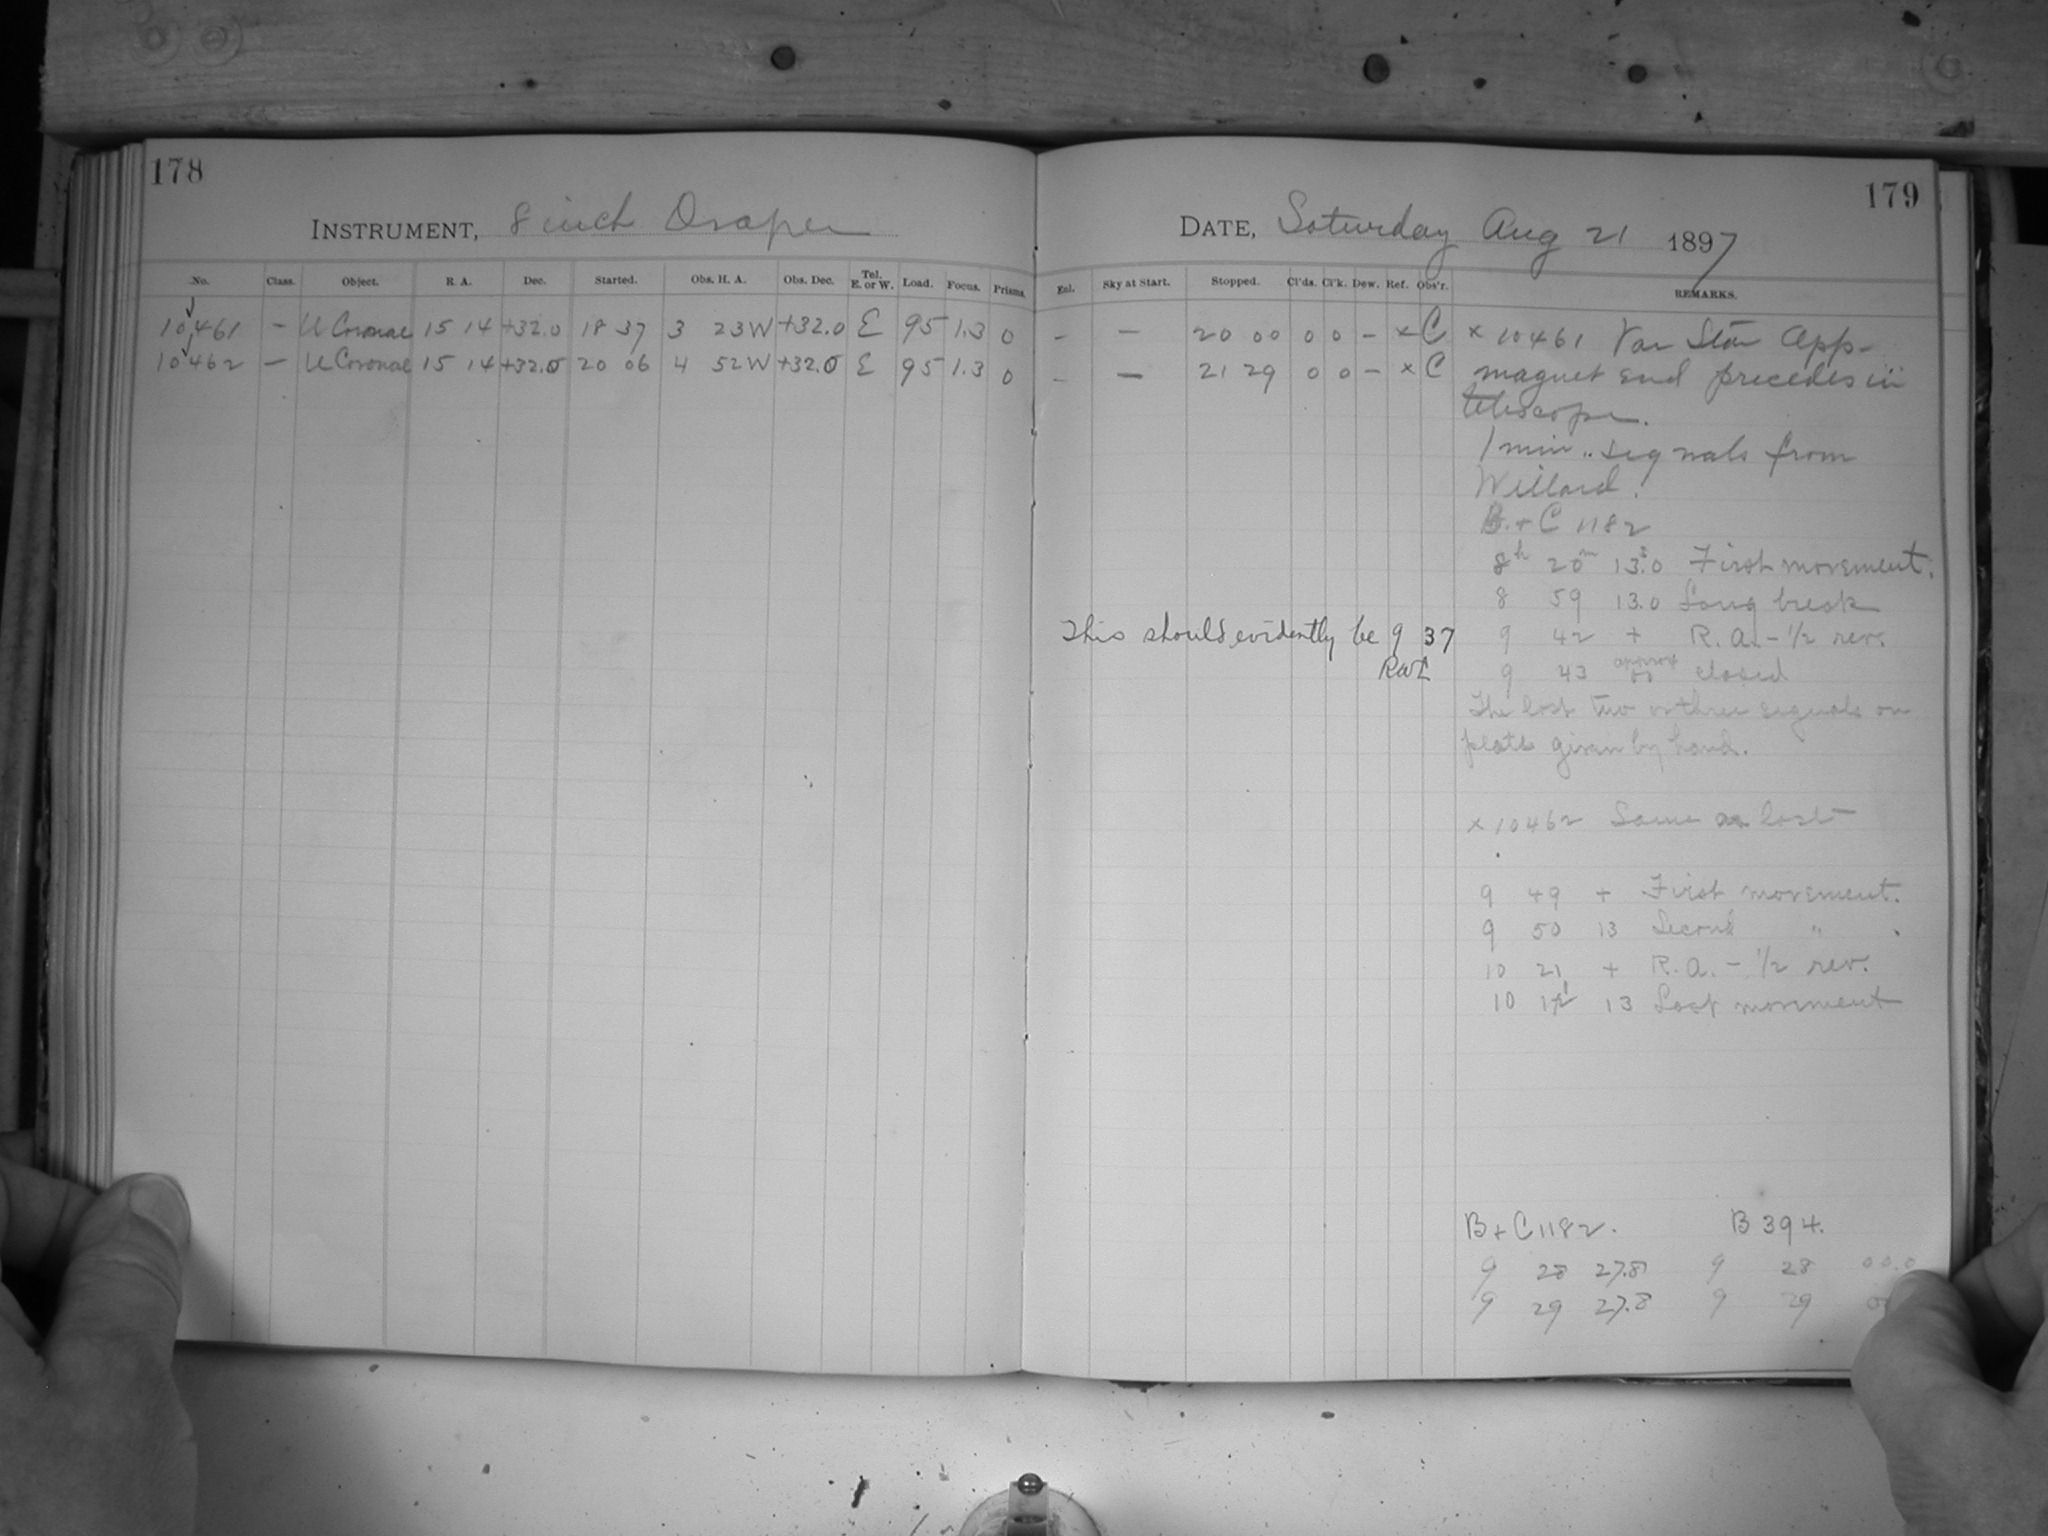 178
INSTRUMENT, 8 inch Draper
No. Class. Object. R. A. Dec. Started. Obs. H. A. Obs. Dec. Tel. E. or W. Load. Focus. Prisms.
10461 – U Coronae 15 14 +32.0 18 37 3 23W +32.0 E 95 1.3 0
10462 – U Coronae 15 14 +32.0 20 06 4 52W +32.0 E 95 1.3 0
179
DATE, Saturday Aug 21 1897
Enl. Sky at Start. Stopped. Cl'ds. Cl'k. Dew. Ref. Obs'r. REMARKS.
– – 20 00 0 0 – × C × 10461 Var Star App–
– – 21 29 0 0 – × C magnet end precedes in
telescope.
1 min. signals from
Willard.
B. + C 1182
8h 20m 13s.0 First movement.
8 59 13.0 Long break
This should evidently be 9 37 9 42 + R.A. – 1/2 rev.
RWL 9 43 approx 00 closed
The last two or three signals on
plate given by hand.
× 10462 Same as last
9 49 + First movement.
9 50 13 Second " .
10 21 + R.A. – 1/2 rev.
10 13 Last movement
B + C 1182. B 394.
9 28 27.8 9 28 00.0
9 29 27.8 9 29